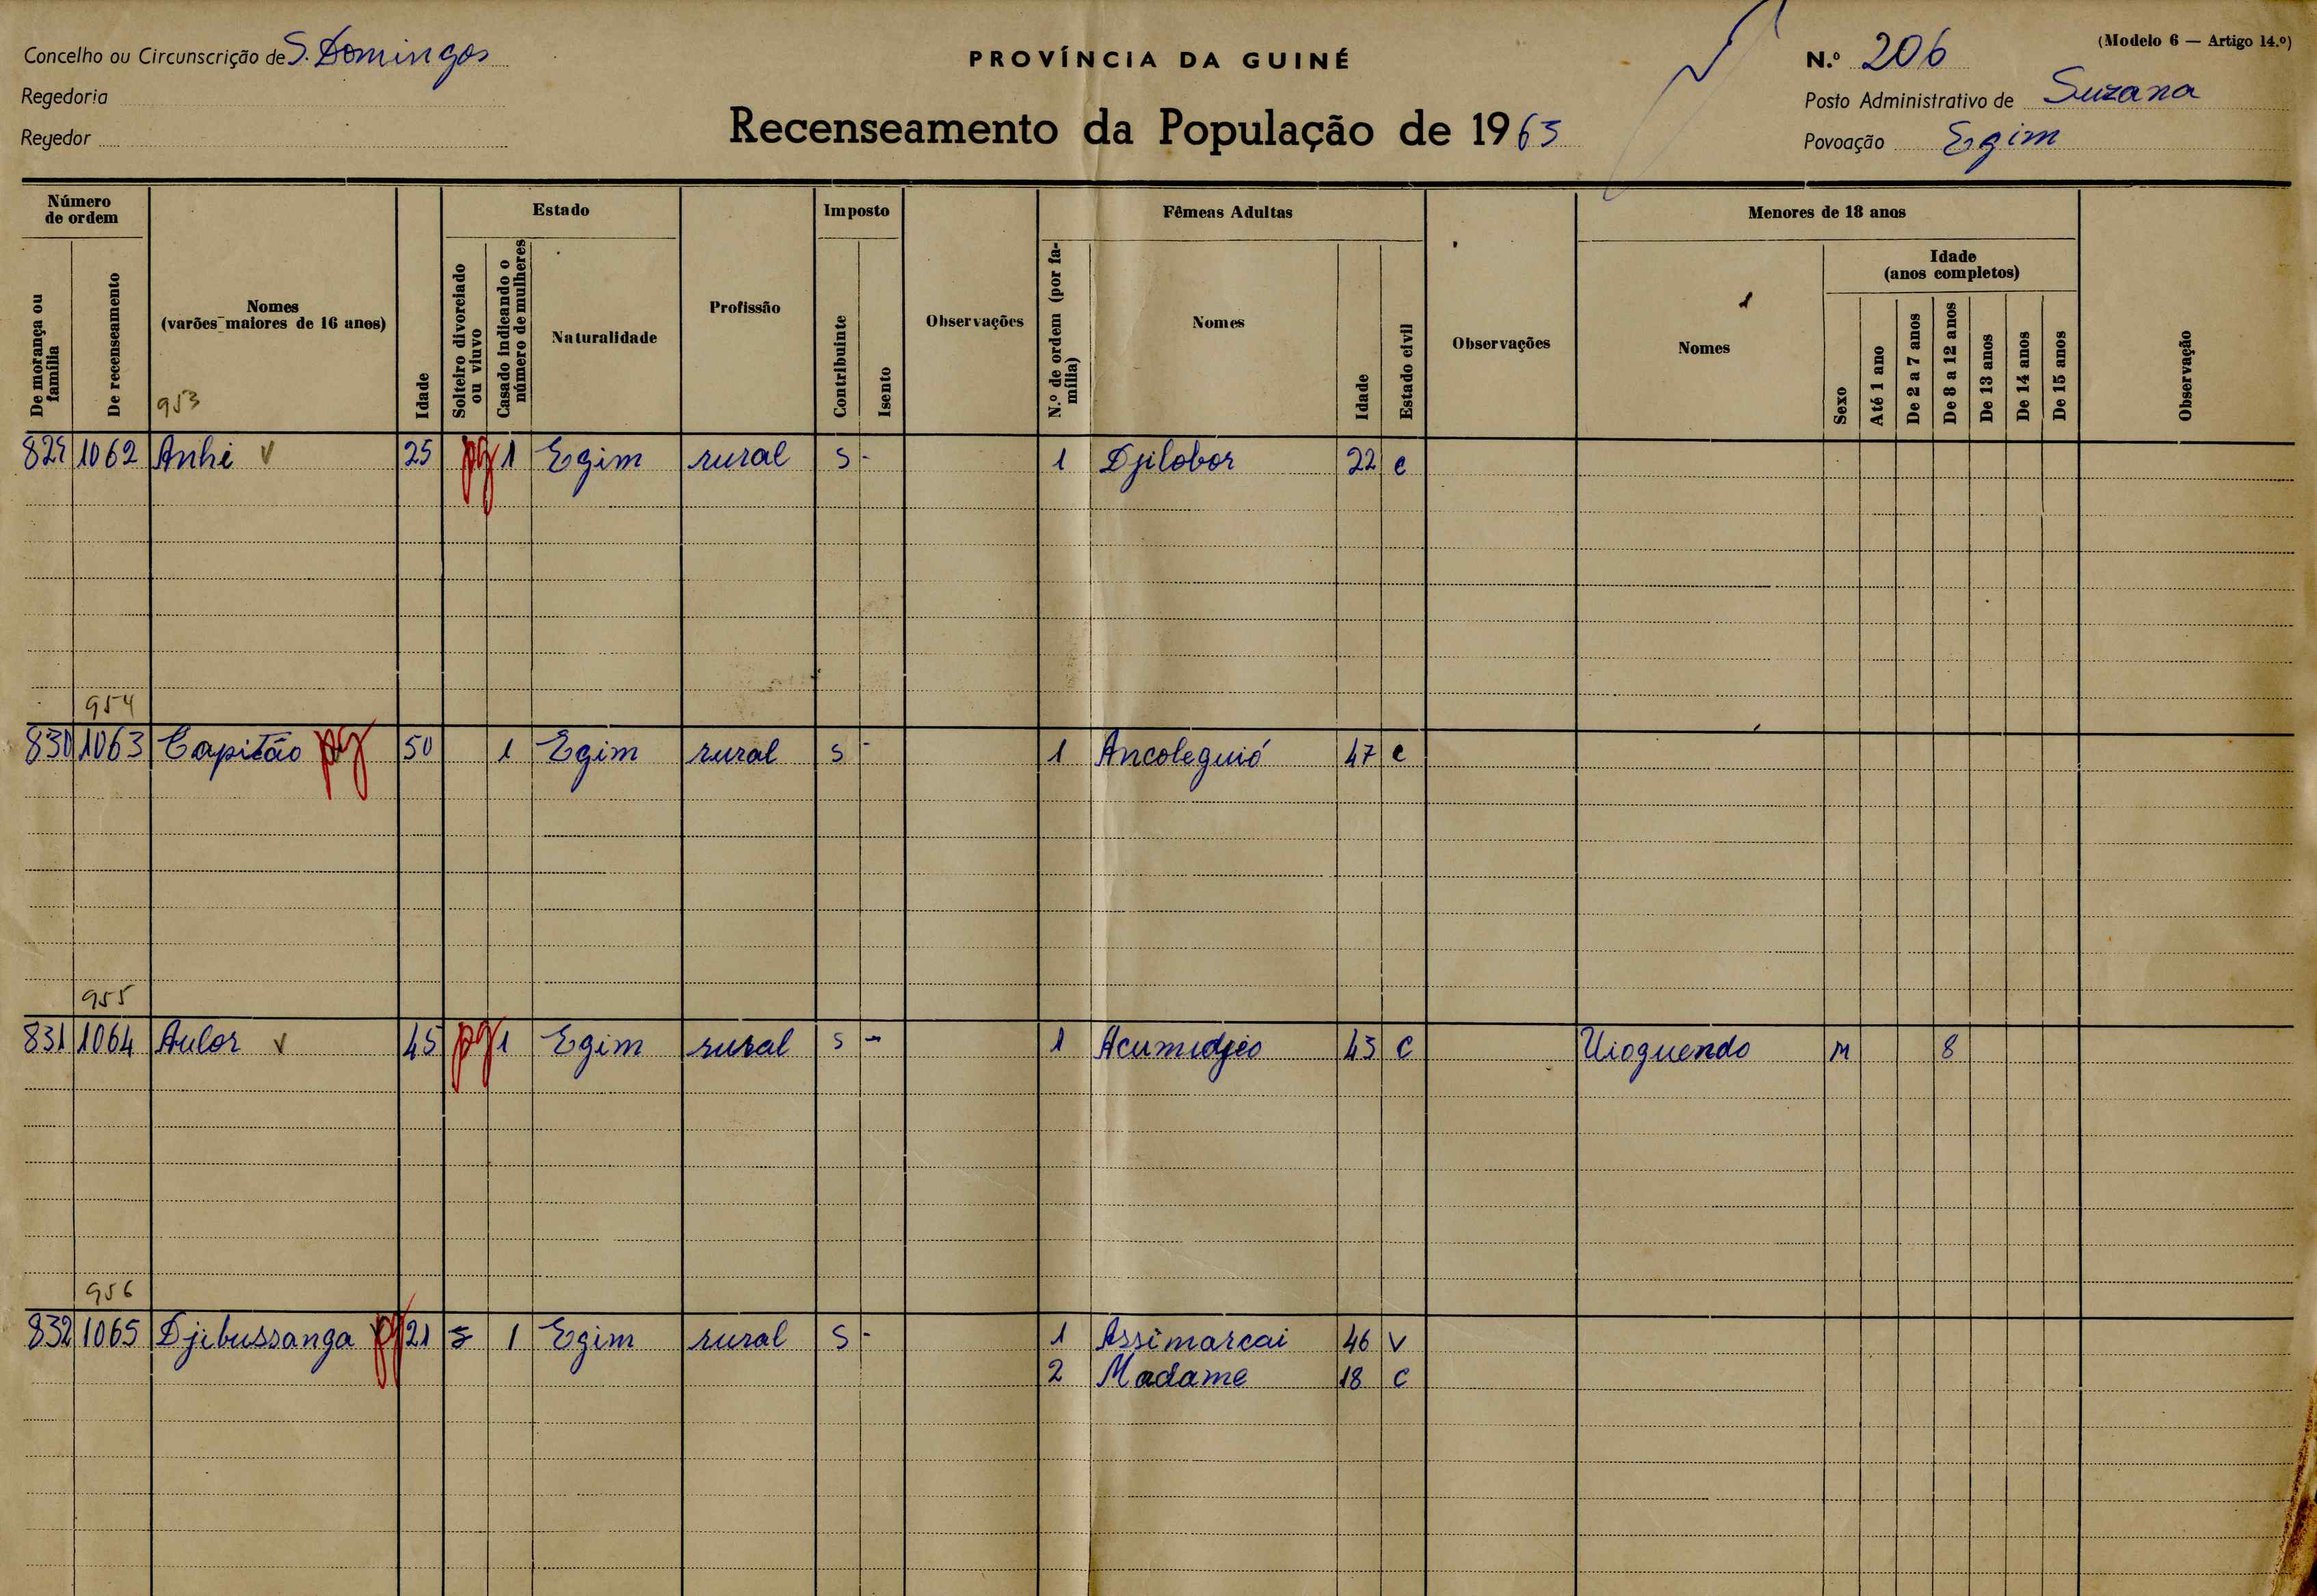 Concelho ou Circunscrição de S. Domingos
PROVÍNCIA DA GUINÉ
N.º 206
(Modelo 6 — Artigo 14.º)
Regedoria
Posto Administrativo de Suzana
Recenseamento da População de 1963
Regedor
Povoação Egim
Número de ordem
Estado
Imposto
Fêmeas Adultas
Menores de 18 anos
De morança ou família
De recenseamento
Nomes (varões maiores de 16 anos)
Idade
Solteiro divorciado ou viuvo
Casado indicando o número de mulheres
Naturalidade
Profissão
Contribuinte
Isento
Observações
N.º de ordem (por família)
Nomes
Idade
Estado civil
Observações
Nomes
Sexo
Idade (anos completos)
Até 1 ano
De 2 a 7 anos
De 8 a 12 anos
De 13 anos
De 14 anos
De 15 anos
Observação
953
829 1062 Anhi v 25 pg 1 Egim rural S - 1 Djilobor 22 c
954
830 1063 Capitão pg 50 1 Egim rural S - 1 Ancoleguió 47 c
955
831 1064 Aulor v 45 pg 1 Egim rural S - 1 Acumidjéo 43 C Uioguendo M 8
956
832 1065 Djibussanga pg 21 s 1 Egim rural S - 1 Assimarcai 46 V
2 Madame 18 C